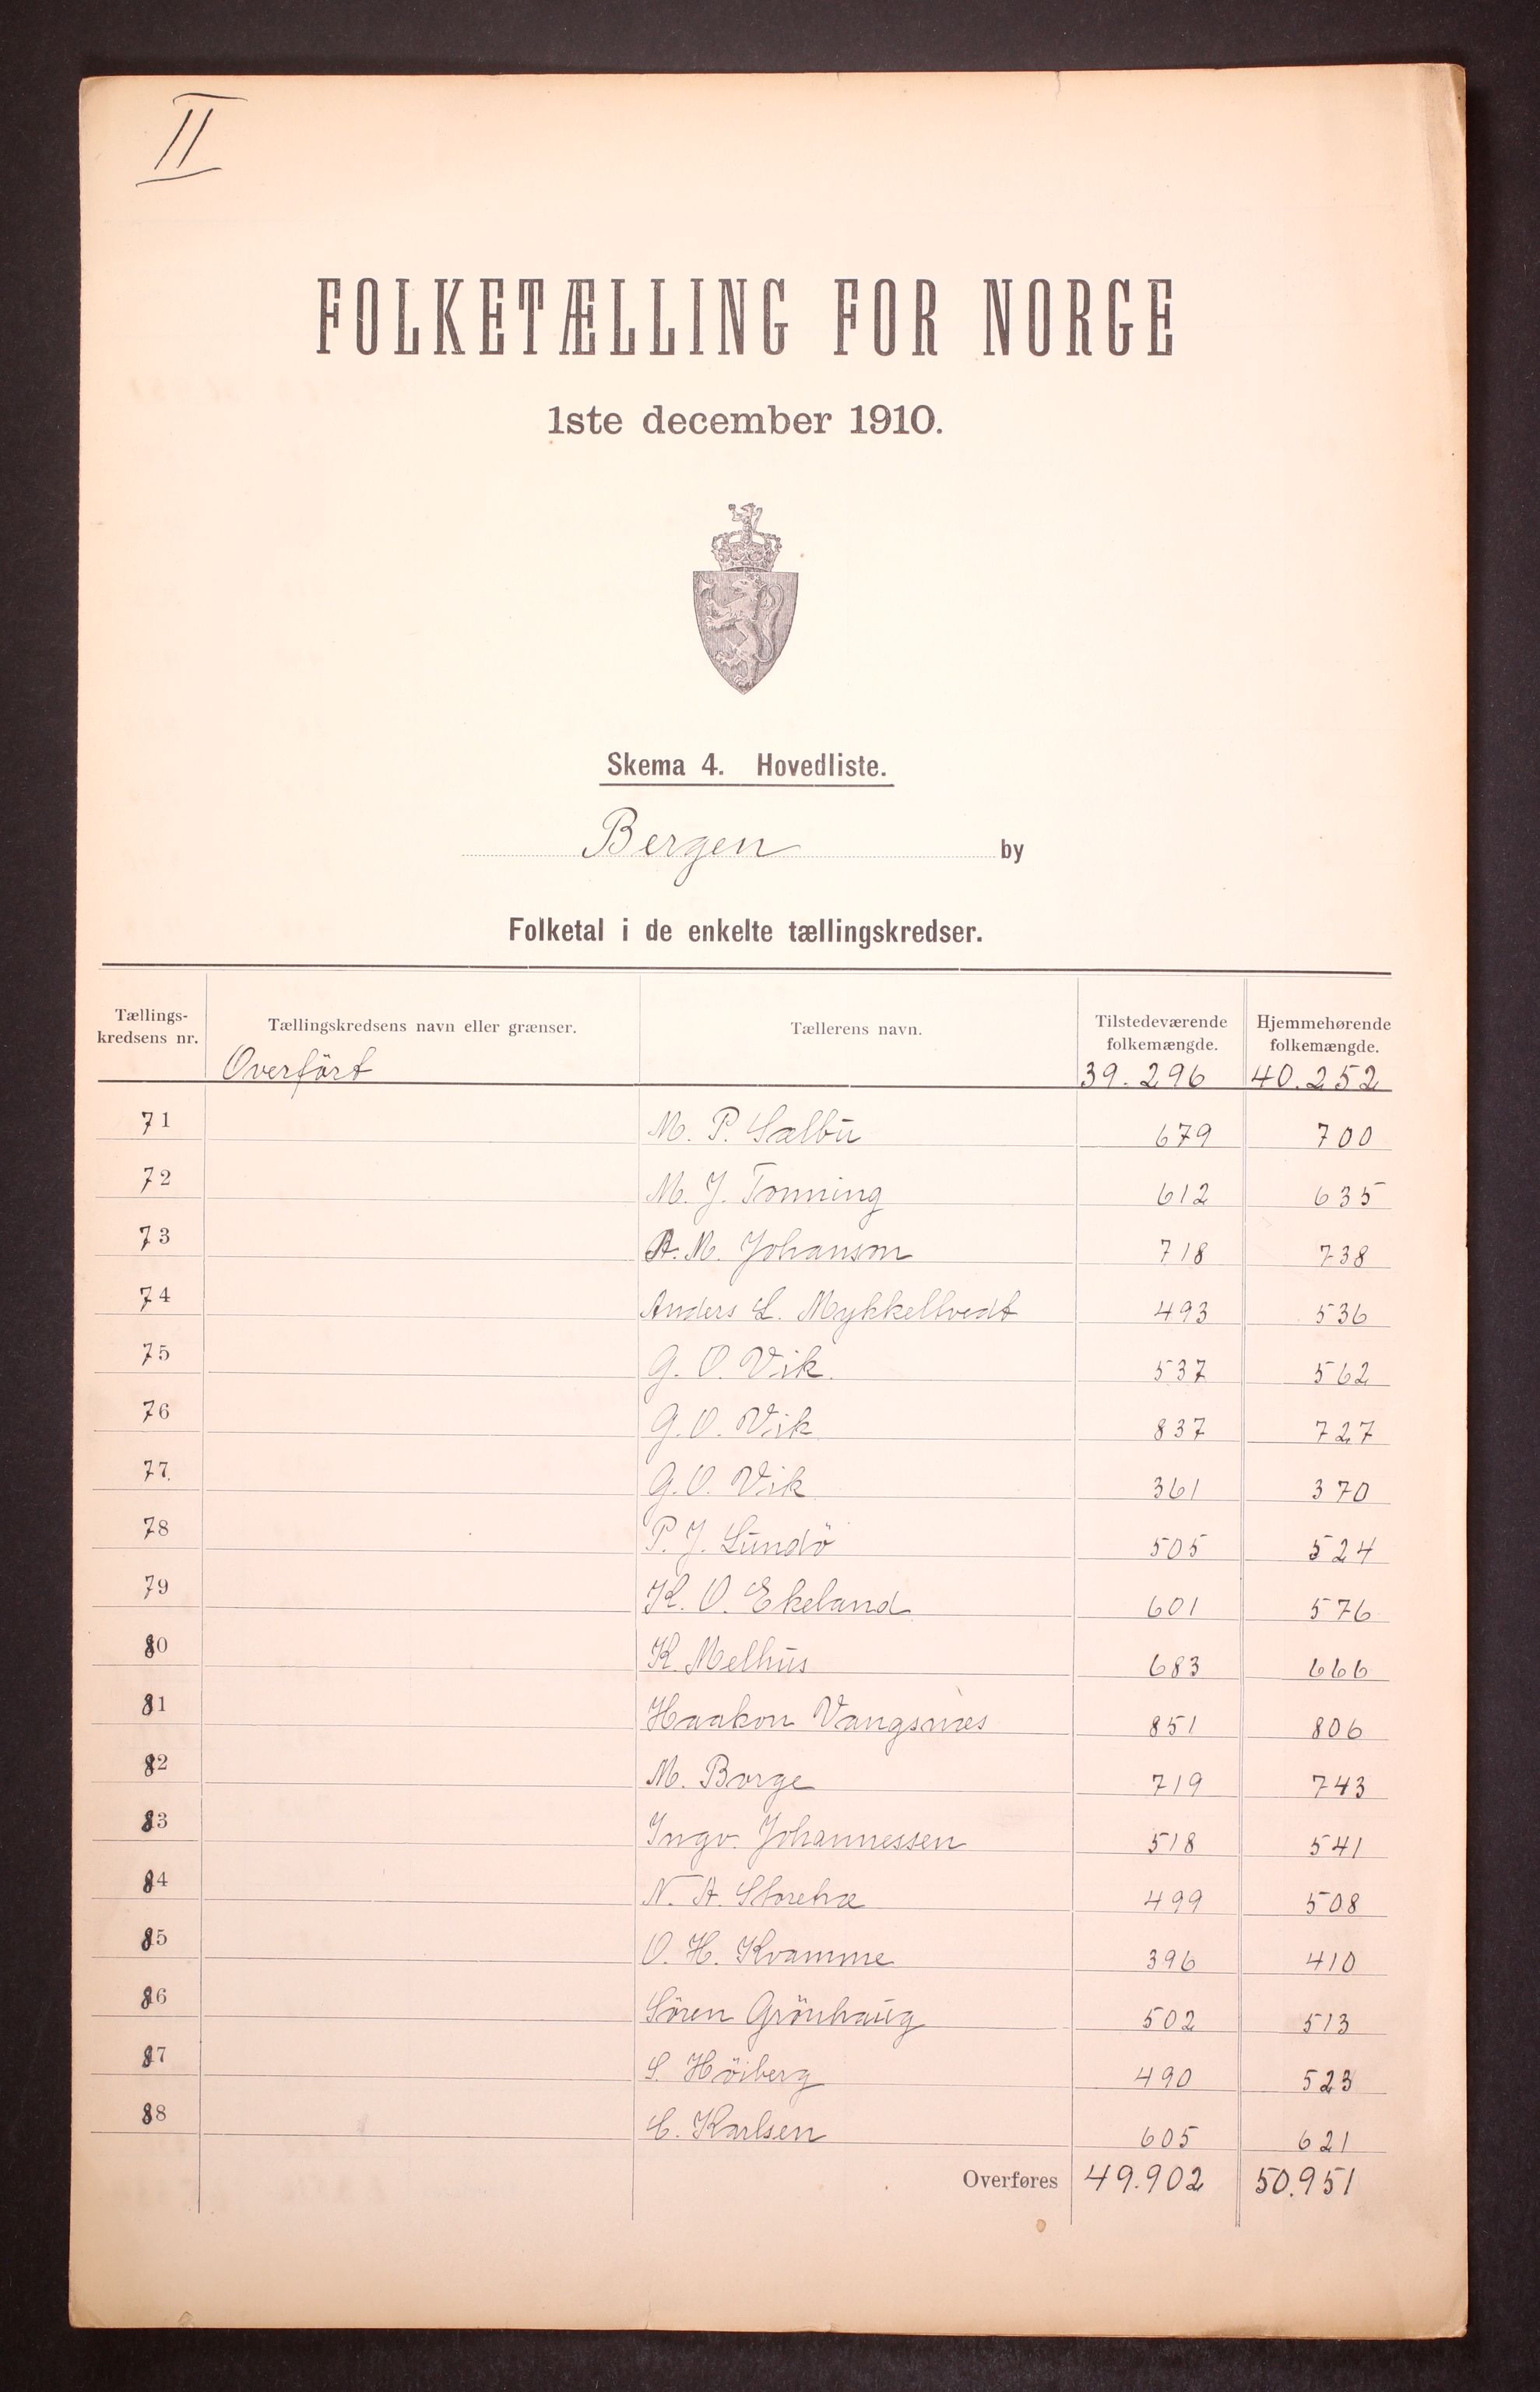 II
FOLKETÆLLING FOR NORGE
1ste december 1910.
Skema 4. Hovedliste.
Bergen by
Folketal i de enkelte tællingskredser.
Tællings-kredsens nr. Tællingskredsens navn eller grænser. Tællerens navn. Tilstedeværende folkemængde. Hjemmehørende folkemængde.
Overført 39.296 40.252
71 M. P. Sælbu 679 700
72 M. J. Tonning 612 635
73 A. M. Johanson 718 738
74 Anders L. Mykkeltvedt 493 536
75 G. O. Vik 537 562
76 G. O. Vik 837 727
77 G. O. Vik 361 370
78 P. J. Lundö 505 524
79 K. O. Ekeland 601 576
80 K. Melhus 683 666
81 Haakon Vangsnes 851 806
82 M. Borge 719 743
83 Ingv. Johannessen 518 541
84 N. A. 499 508
85 O. H. Kvamme 396 410
86 Sören Grönhaug 502 513
87 S. Höiberg 490 523
88 C. Karlsen 605 621
Overføres 49.902 50.951